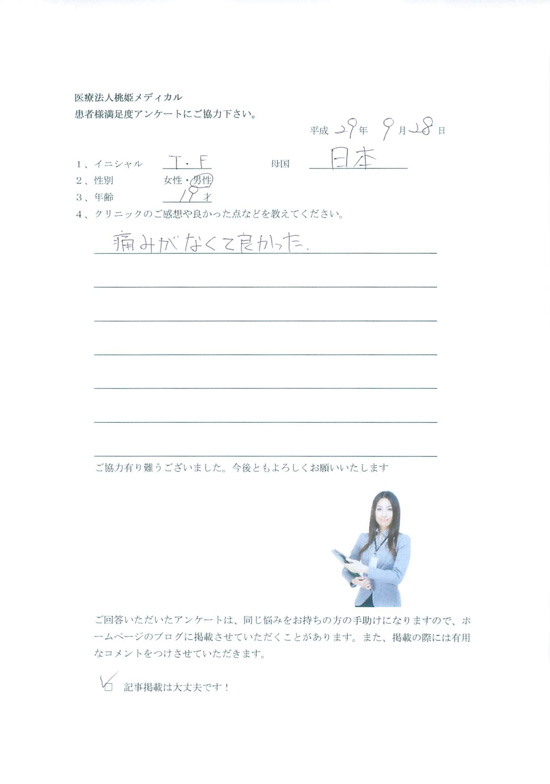 医療法人桃姫メディカル
患者様満足度アンケートにご協力下さい。
平成 29 年 9 月 28 日
1、イニシャル T・F 母国 日本
2、性別 女性・男性
3、年齢 19 才
4、クリニックのご感想や良かった点などを教えてください。
痛みがなくて良かった.
ご協力有り難うございました。今後ともよろしくお願いいたします
ご回答いただいたアンケートは、同じ悩みをお持ちの方の手助けになりますので、ホ
ームページのブログに掲載させていただくことがあります。また、掲載の際には有用
なコメントをつけさせていただきます。
□ 記事掲載は大丈夫です！